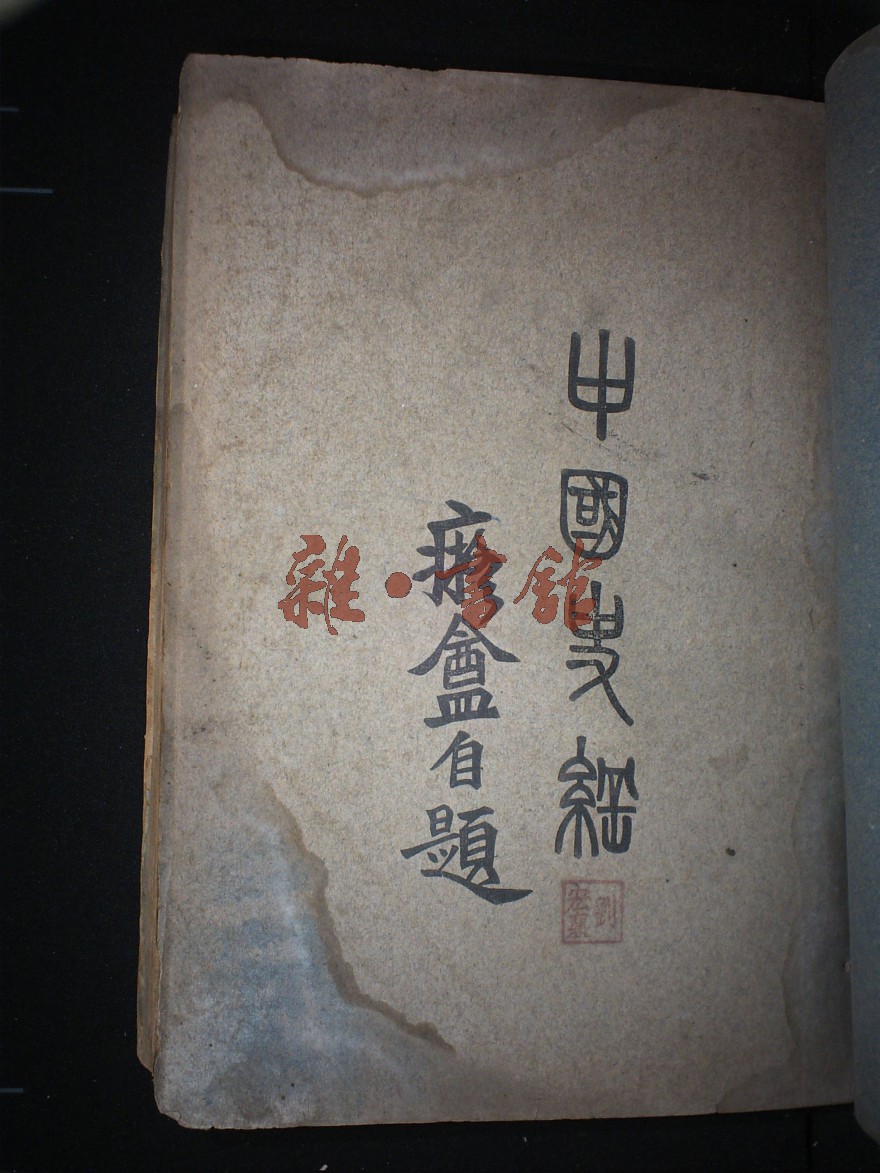 中國史綱
盦自題
雜·書館